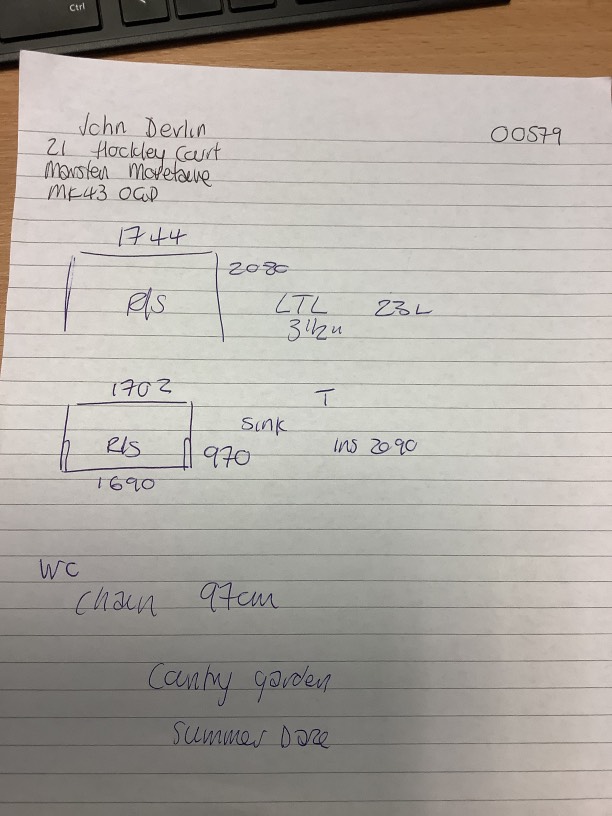 Ctrl
John Devlin
00579
21 Hockley Court
Marsten Moretaine
MK43
1744
2080
R/S
LTL 23L
3 1/2"
1702
T
Sink
R/S
970
ins 2090
1690
WC
Chain 97cm
Country garden
Summer Daze